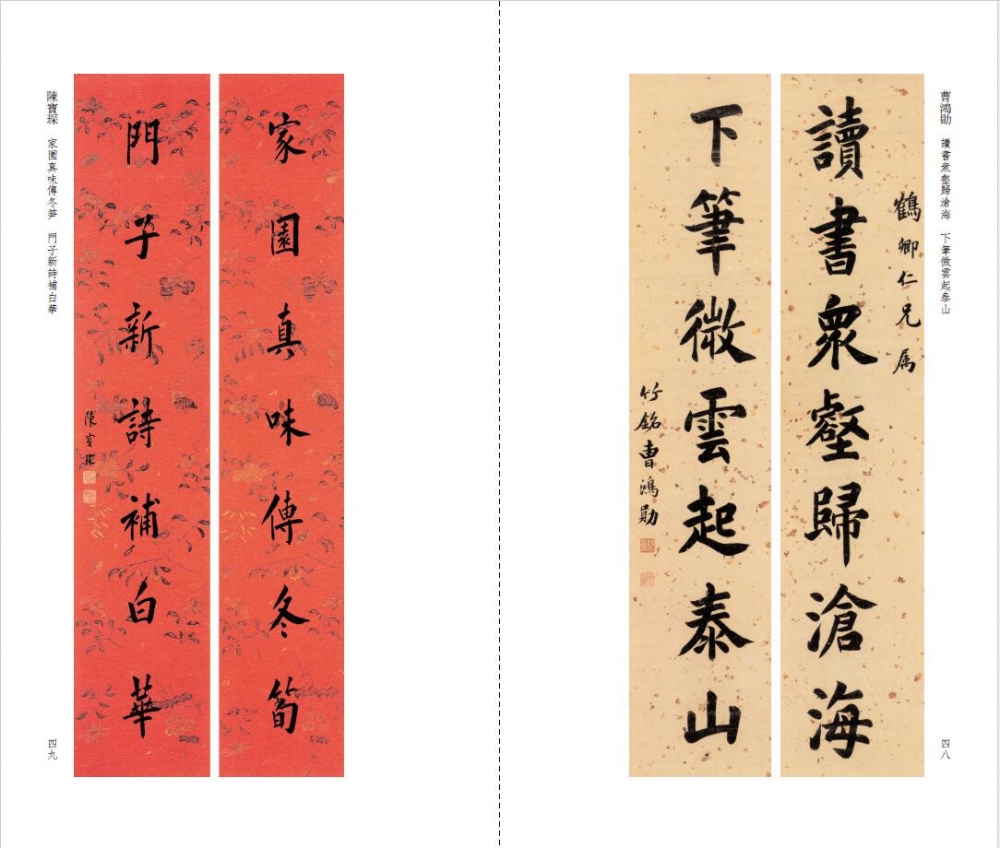 曹鴻勛 讀書衆壑歸滄海 下筆微雲起泰山
四八
鶴卿仁兄属
讀書眾壑歸滄海
下筆微雲起泰山
竹銘曹鴻勛
家園真味傳冬筍
門子新詩補白華
陳寶琛
陳寶琛 家園真味傳冬笋 門子新詩補白華
四九